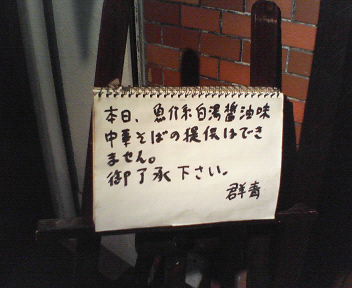 本日、魚介系白湯醤油味
中華そばの提供はでき
ません。
御了承下さい。
群青